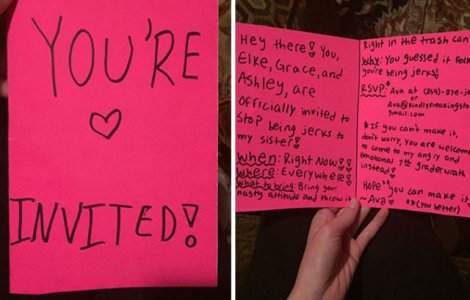 YOU'RE
INVITED!
Hey there! You,
Elke, Grace, and
Ashley, are
officially invited to
stop being jerks to
my sister!
When: Right Now!!
Where: Everywhere!
What to bring: Bring your
nasty attitude and throw it
Right in the trash can
Why: You guessed it
you're being jerks!
RSVP: Ava at
or
gmail.com
*If you can't make it,
don't worry, you are welcome
to come to my angry and
emotional 7th grader wrath
instead!
Hope** you can make it,
~Ava! **(You better)